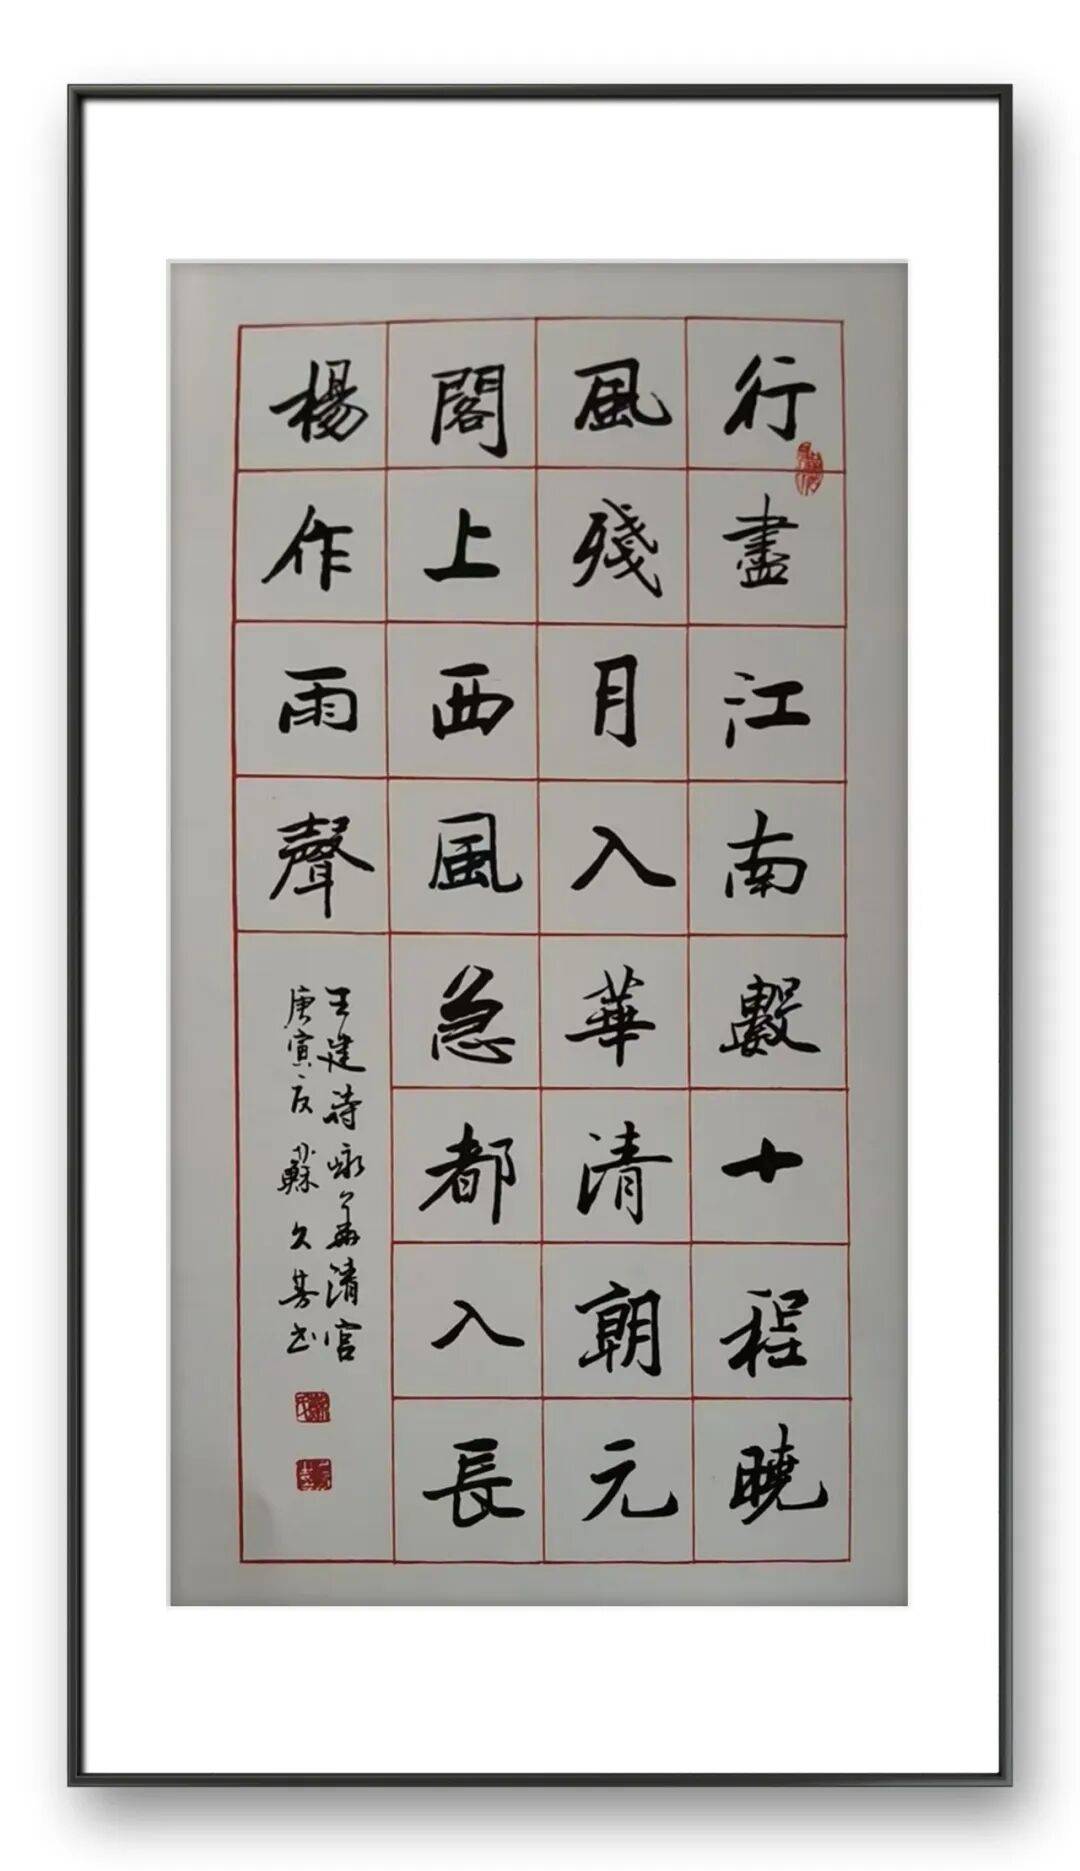 行盡江南數十程曉
風殘月入華清朝元
閣上西風急都入長
楊作雨聲
王建詩咏華清宮
庚寅夏蘇久芳书